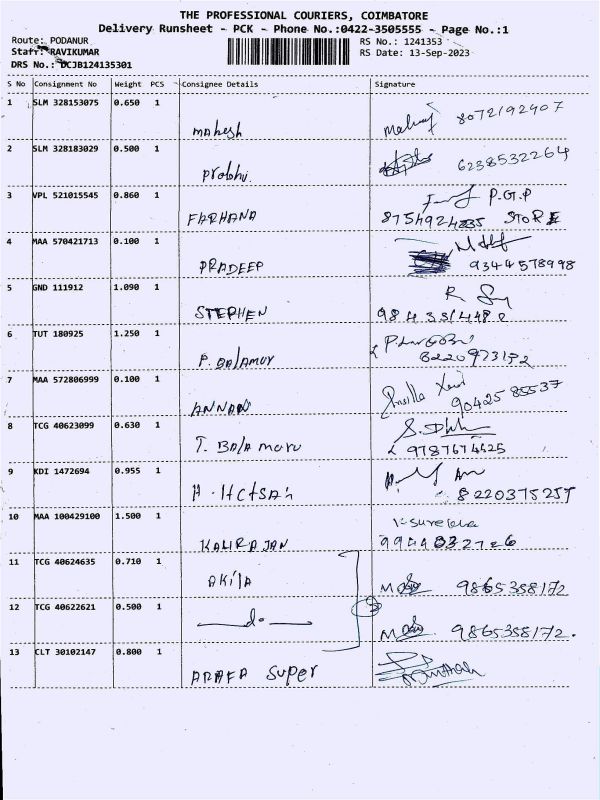 THE PROFESSIONAL COURIERS, COIMBATORE
Delivery Runsheet - PCK - Phone No.:0422-3505555 - Page No.:1
Route: PODANUR RS No.: 1241353
Staff: RAVIKUMAR RS Date: 13-Sep-2023
DRS No.: DCJB124135301
S No Consignment No Weight PCS Consignee Details Signature
1 SLM 328153075 0.650 1
mahesh 8072192907
2 SLM 328183029 0.500 1
Prabhu. 6238532264
3 VPL 521015545 0.860 1 P.G.P
FARHANA STORE
4 MAA 570421713 0.100 1
PRADEEP 9344578998
5 GND 111912 1.090 1
STEPHEN
6 TUT 180925 1.250 1
P. BalAMUY
7 MAA 572806999 0.100 1
ANNAN 9042585537
8 TCG 40623099 0.630 1
T. BalA
9 KDI 1472694 0.955 1
10 MAA 100429100 1.500 1
KALIRAJAN
11 TCG 40624635 0.710 1
AKilA 9865358172
12 TCG 40622621 0.500 1
do 9865358172.
13 CLT 30102147 0.800 1
ARAFA Super